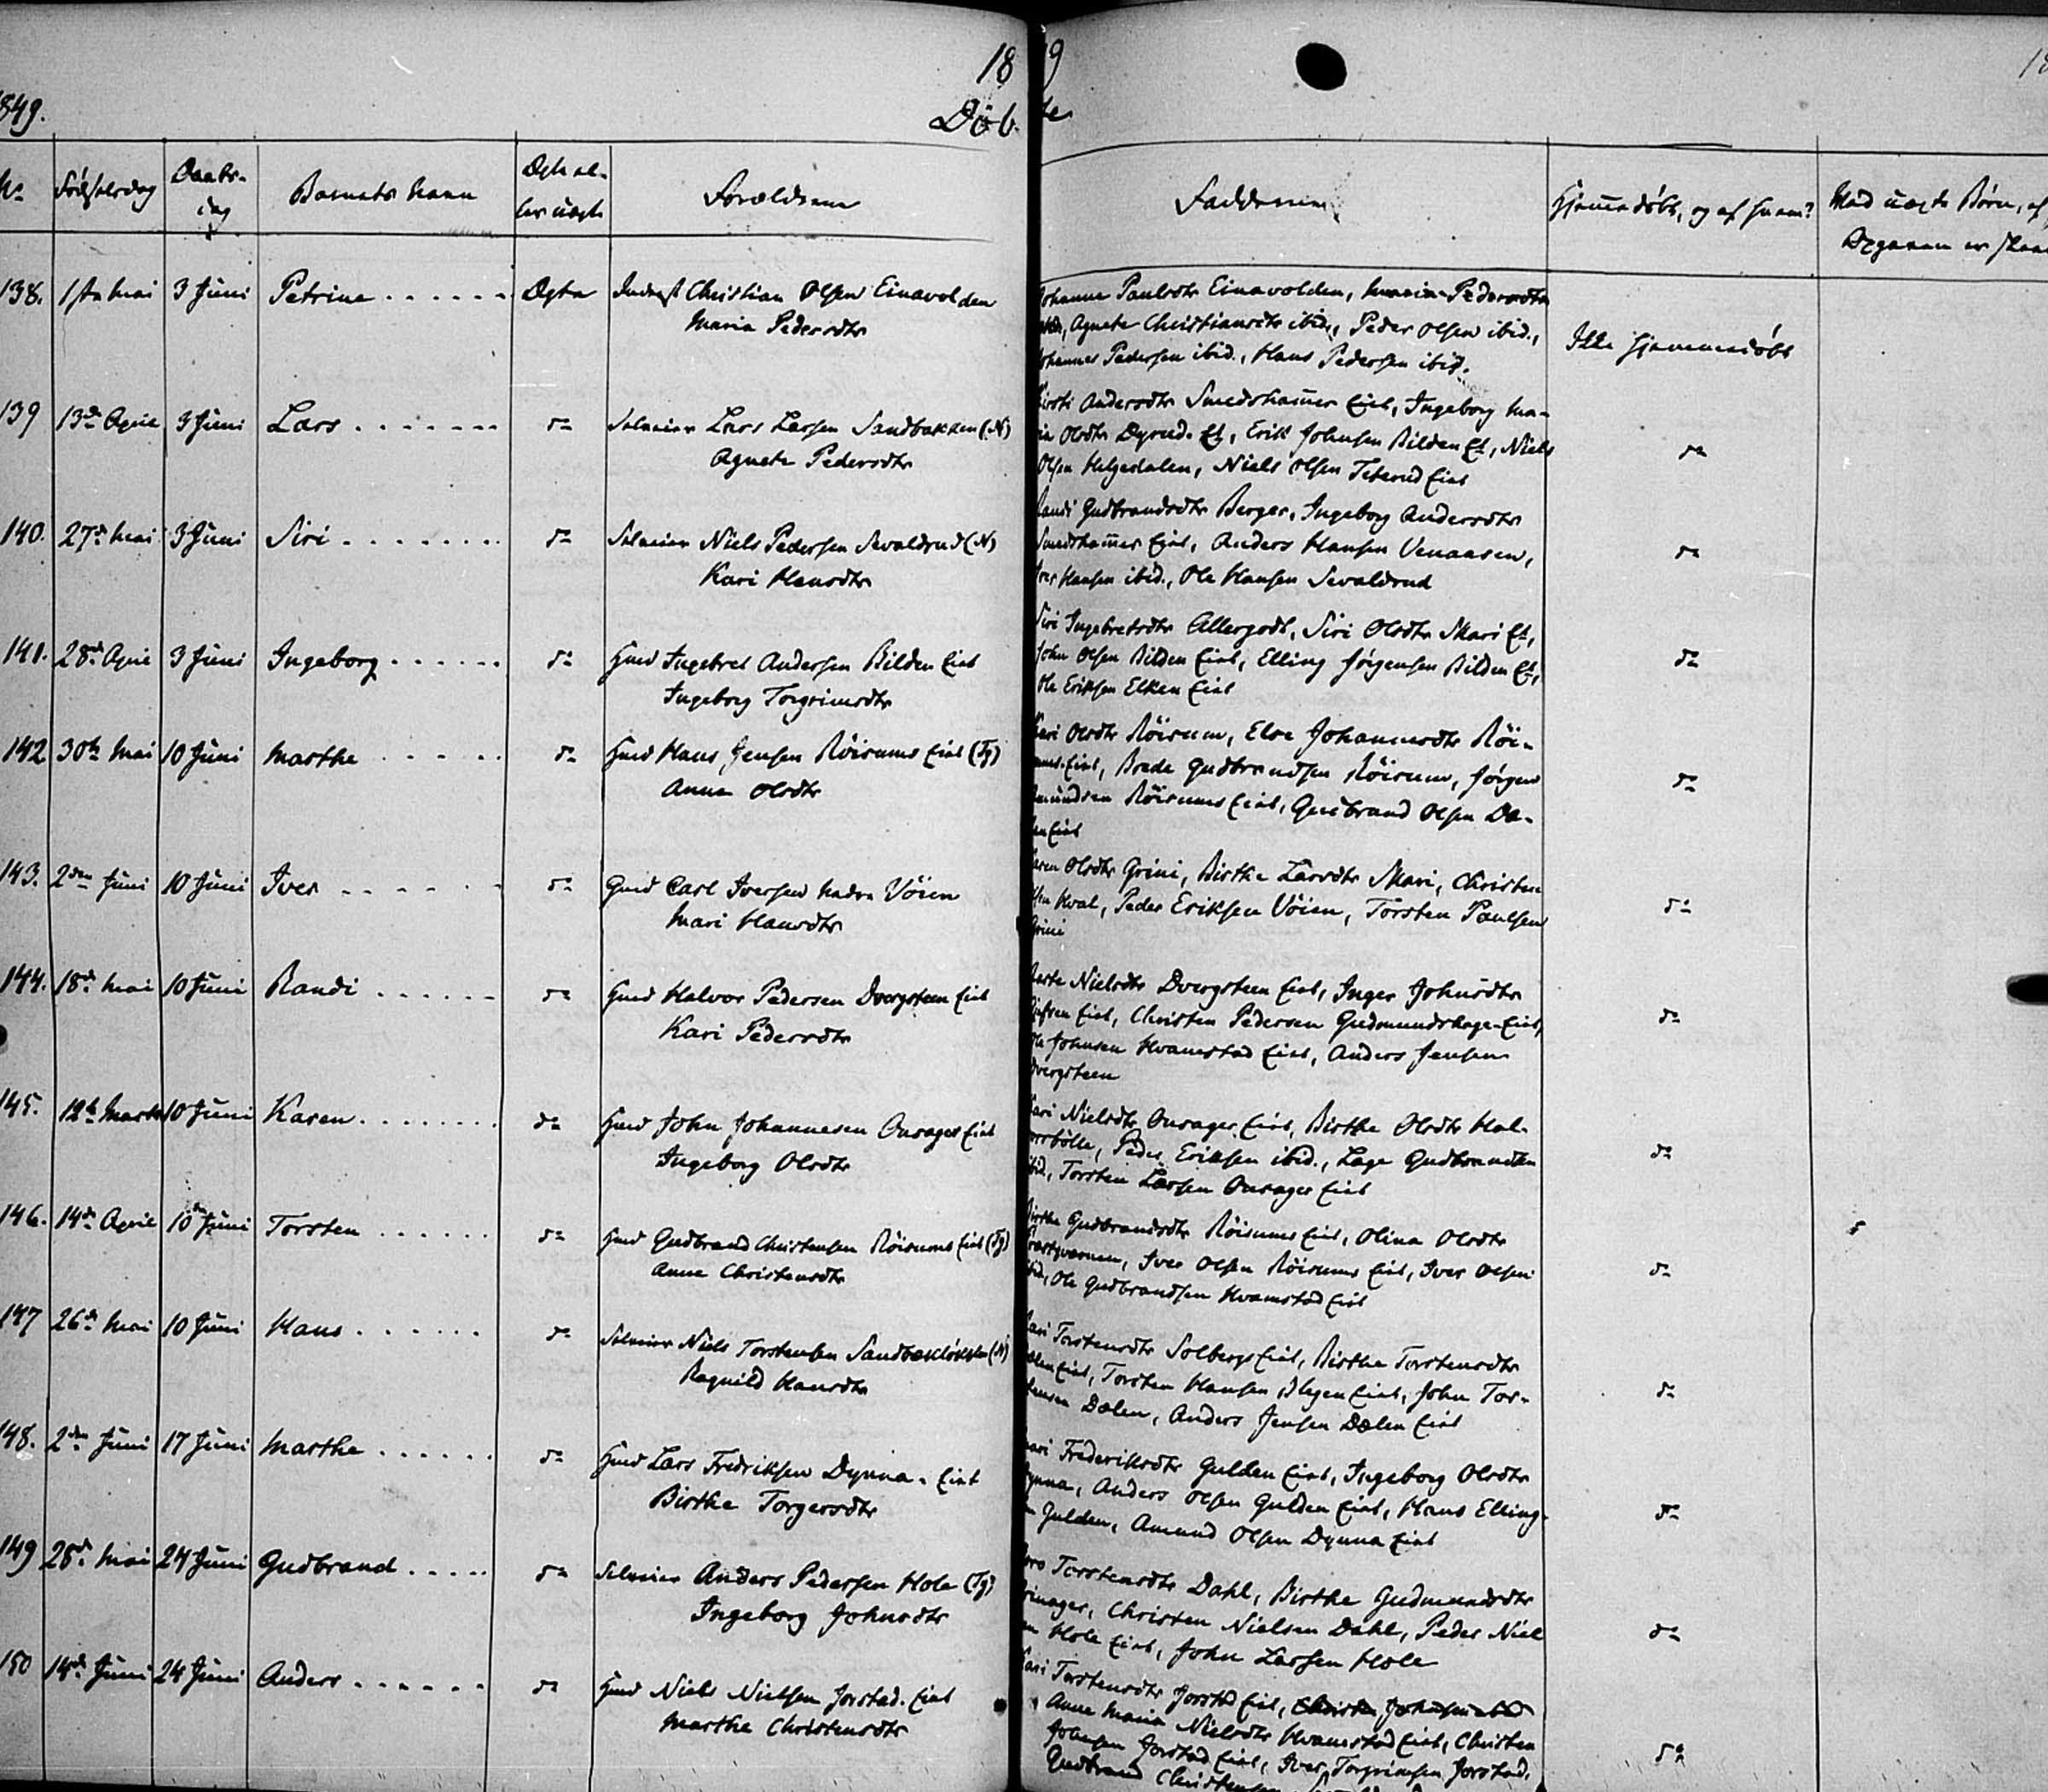 18
9
1849.
Döb
te
18
No
Fødselsdag
Daabs-
dag
Barnets Navn
Ægte el-
ler uægte
Forældrene
Fadderne
Hjemmedøbt, og af hvem?
Med uægte Børn, af
138. 1ste Mai 3 Juni Petrine Ægte Christian Olsen Einavolden
Maria Pedersdtr
Johanne Paulsdtr Einavolden, Maria Pedersdtr
Agnete Christiansdtr ibid., Peder Olsen ibid.,
Johannes Pedersen ibid., Hans Pedersen ibid.
Ikke hjemmedøbt
139 13de April 3 Juni Lars do Selveier Lars Larsen Sandbakken (N)
Agnete Pedersdtr
Kirsti Andersdtr Smedshammer Eiet, Ingeborg Ma-
ria Olsdtr Dyrud Et, Erik Johnsen Bilden Et, Niels
Olsen Helgedalen, Niels Olsen Teterud Eiet
do
140. 27de Mai 3 Juni Siri do Selveier Niels Pedersen Sevaldrud (N)
Kari Hansdtr
Randi Gudbrandsdtr Berger, Ingeborg Andersdtr
Smedshammer Eiet, Anders Hansen Venaasen,
Iver Hansen ibid., Ole Hansen Sevaldrud
do
141. 28de April 3 Juni Ingeborg do Hmd Ingebret Andersen Bilden Eiet
Ingeborg Torgrimsdtr
Siri Ingebretsdtr Allergodt, Siri Olsdtr Skari Et,
John Olsen Bilden Eiet, Elling Jørgensen Bilden Et,
Ole Eriksen Elken Eiet
do
142 30te Mai 10 Juni Marthe do Hmd Hans Jensen Röisums Eiet (Tg)
Anne Olsdtr
Kari Olsdtr Röisum, Else Johannesdtr Röi-
sums Eiet, Brede Gudbrandsen Röisum, Jørgen
Amundsen Röisums Eiet, Gudbrand Olsen Dæ-
len Eiet
do
143. 2den Juni 10 Juni Iver do Gmd Carl Iversen nedre Vöien
Mari Hansdtr
Karen Olsdtr Grini, Birthe Larsdtr Skari, Christen
Hval, Peder Eriksen Vöien, Torsten Paulsen
Grini
do
144. 18de Mai 10 Juni Randi do Hmd Halvor Pedersen Dvergsteen Eiet
Kari Pedersdtr
Marte Nielsdtr Dvergsteen Eiet, Inger Johnsdtr
Eiet, Christen Pedersen Gudmundshage-Eiet,
Ole Johnsen Hvamstad Eiet, Anders Jensen
Dvergsteen
do
145. 12te Marts 10 Juni Karen do Hmd John Johannesen Onsager Eiet
Ingeborg Olsdtr
Kari Nielsdtr Onsager Eiet, Birthe Olsdtr Hal-
vorsbölle, Peder Eriksen ibid., Lage Gudbrandsen
ibid., Torstein Larsen Onsager Eiet
do
146. 14de April 10 Juni Torsten do Hmd Gudbrand Christensen Röisums Eiet (Tg)
Anne Christensdtr
Birthe Gudbrandsdtr Röisums Eiet, Olina Olsdtr
Iver Olsen Röisums Eiet, Iver Olsen
ibid, Ole Gudbrandsen Hvamstad Eiet
do
147 26de Mai 10 Juni Hans do Selveier Niels Torstensen Sandbækløkken (N)
Ragnild Hansdtr
Kari Torstensdtr Solbergs Eiet, Birthe Torstensdtr
Dælen Eiet, Torsten Hansen Eiet, John Tor-
stensen Dælen, Anders Jensen Dælen Eiet
do
148. 2den Juni 17 Juni Marthe do Hmd Lars Fredriksen Dynna-Eiet
Birthe Torgersdtr
Mari Frederiksdtr Gulden Eiet, Ingeborg Olsdtr
Dynna, Anders Olsen Gulden Eiet, Hans Elling-
sen Gulden, Amund Olsen Dynna Eiet
do
149 28de Mai 24 Juni Gudbrand do Selveier Anders Pedersen Hole (Tg)
Ingeborg Johnsdtr
Goro Torstensdtr Dahl, Birthe Gudmundsdtr
Grinager, Christen Nielsen Dahl, Peder Niel
sen Hole Eiet, John Larsen Hole
do
150 14de Juni 24 Juni Anders do Hmd Niels Nielsen Jorstad-Eiet
Marthe Christensdtr
Kari Torstensdtr Jorstad Eiet, Christen Johnsen
Anne Maria Nielsdtr Hvamstad Eiet, Christen
Johnsen Jorstad Eiet, Iver Torgrimsen Jorstad,
Gudbrand Christensen
do